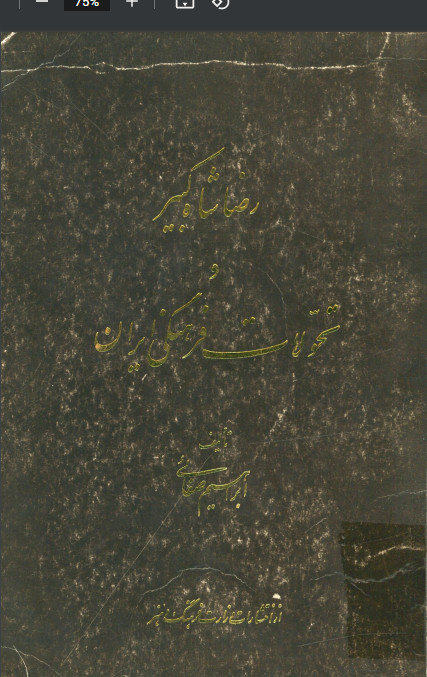 75%
رضا شاه کبیر
و
تحوّلات فرهنگی ایران
تألیف
ابراهیم صفائی
از انتشارات وزارت فرهنگ و هنر